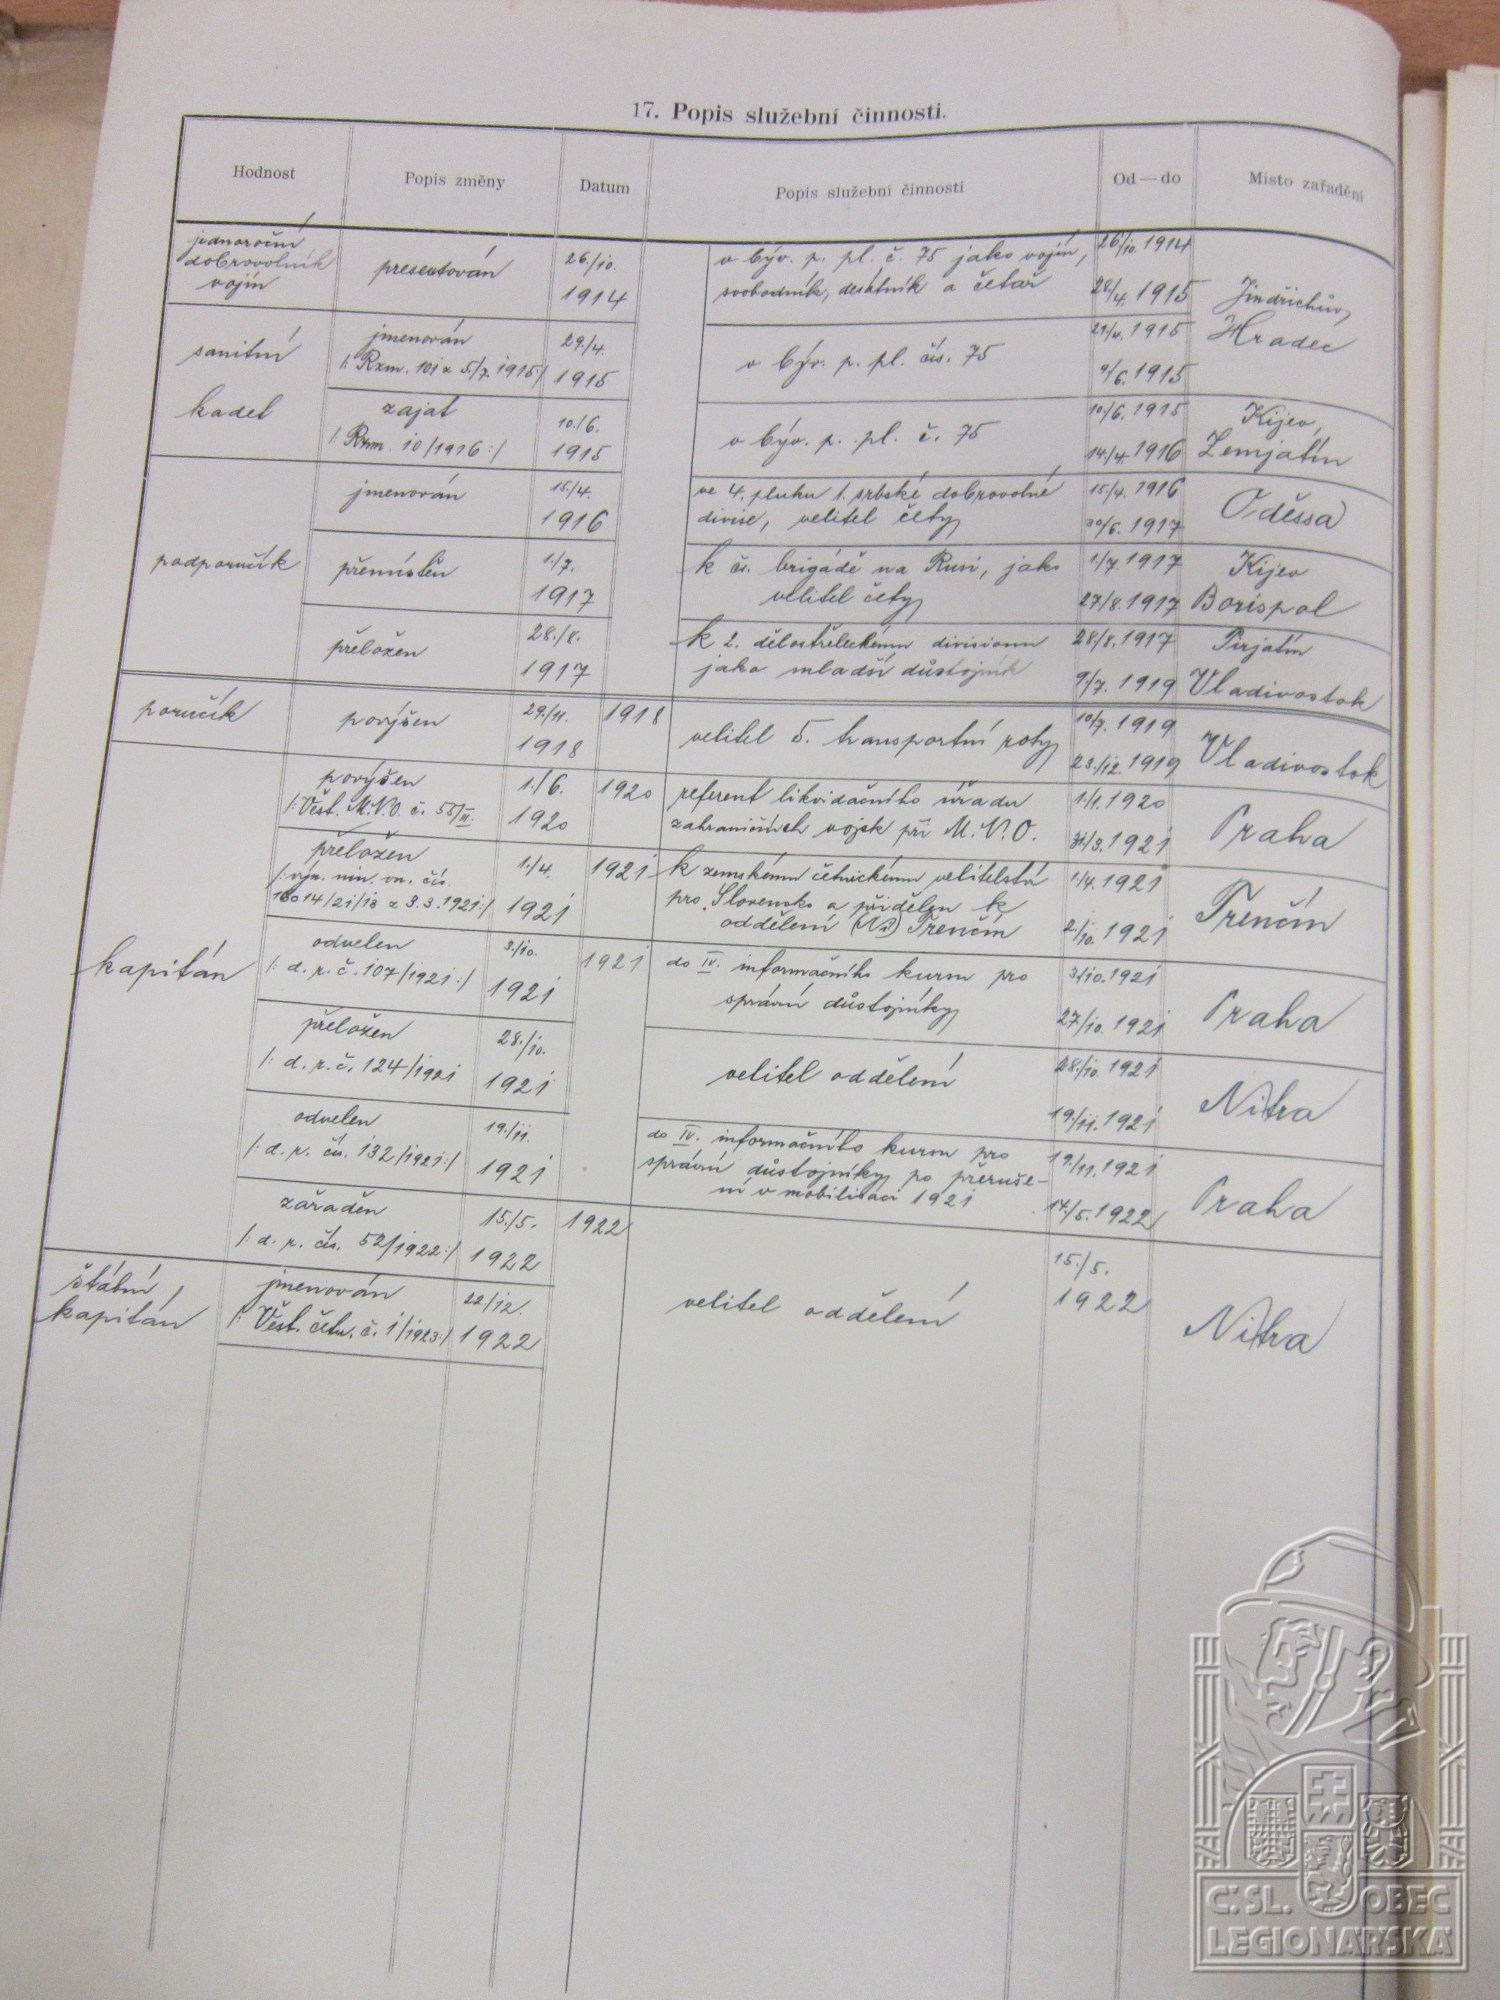 17. Popis služební činnosti.
Hodnost
Popis změny
Datum
Popis služební činnosti
Od — do
Místo zařadění
jednoroční
dobrovolník
vojín
presentován
26./10.
1914
v býv. p. pl. č. 75 jako vojín,
svobodník, desátník a četař
26/10. 1914
28/4. 1915
Jindřichův
Hradec
sanitní
jmenován
/: Rzm. 101 z 5/7. 1915:/
29./4.
1915
v býv. p. pl. čís. 75
29/4. 1915
9/6. 1915
kadet
zajat
/: Rzm. 10/1916:/
10./6.
1915
v býv. p. pl. č. 75
10/6. 1915
14/4. 1916
Kijev,
Zemjatín
podporučík
jmenován
15./4.
1916
ve 4. pluku 1. srbské dobrovolné
divise, velitel čety
15/4. 1916
30/6. 1917
Oděssa
přemístěn
1./7.
1917
k čs. brigádě na Rusi, jako
velitel čety
1/7. 1917
27/8. 1917
Kijev
Borispol
přeložen
28./8.
1917
k 2. dělostřeleckému divisionu
jako mladší důstojník
28/8. 1917
9/7. 1919
Pirjatín
Vladivostok
poručík
povýšen
29./11.
1918
1918
velitel 5. transportní roty
10/7. 1919
23./12. 1919
Vladivostok
kapitán
povýšen
/: Věst. M.N.O. č. 55/III.
1./6.
1920
1920
referent likvidačního úřadu
zahraničních vojsk při M.N.O.
1/1. 1920
31/3. 1921
Praha
přeložen
/: výn. min. vn. čís.
16014/21/13 z 3.3.1921:/
1./4.
1921
1921
k zemskému četnickému velitelství
pro Slovensko a přidělen k
oddělení Trenčín
1/4. 1921
2/10. 1921
Trenčín
odvelen
/: d. r. č. 107/1921:/
3./10.
1921
1921
do IV. informačního kursu pro
správní důstojníky
3/10. 1921
27/10. 1921
Praha
přeložen
/: d. r. č. 124/1921
28./10.
1921
velitel oddělení
28./10. 1921
19./11. 1921
Nitra
odvelen
/: d. r. čís. 132/1921:/
19./11.
1921
do IV. informačního kursu pro
správní důstojníky po přeruše-
ní v mobilisaci 1921
19./11. 1921
14/5. 1922
Praha
zařaděn
/: d. r. čís. 52/1922:/
15./5.
1922
1922
velitel oddělení
15./5.
1922
Nitra
štátní
kapitán
jmenován
/: Věst. četn. č. 1/1923:/
22/12.
1922
Č.SL. OBEC
LEGIONÁŘSKÁ